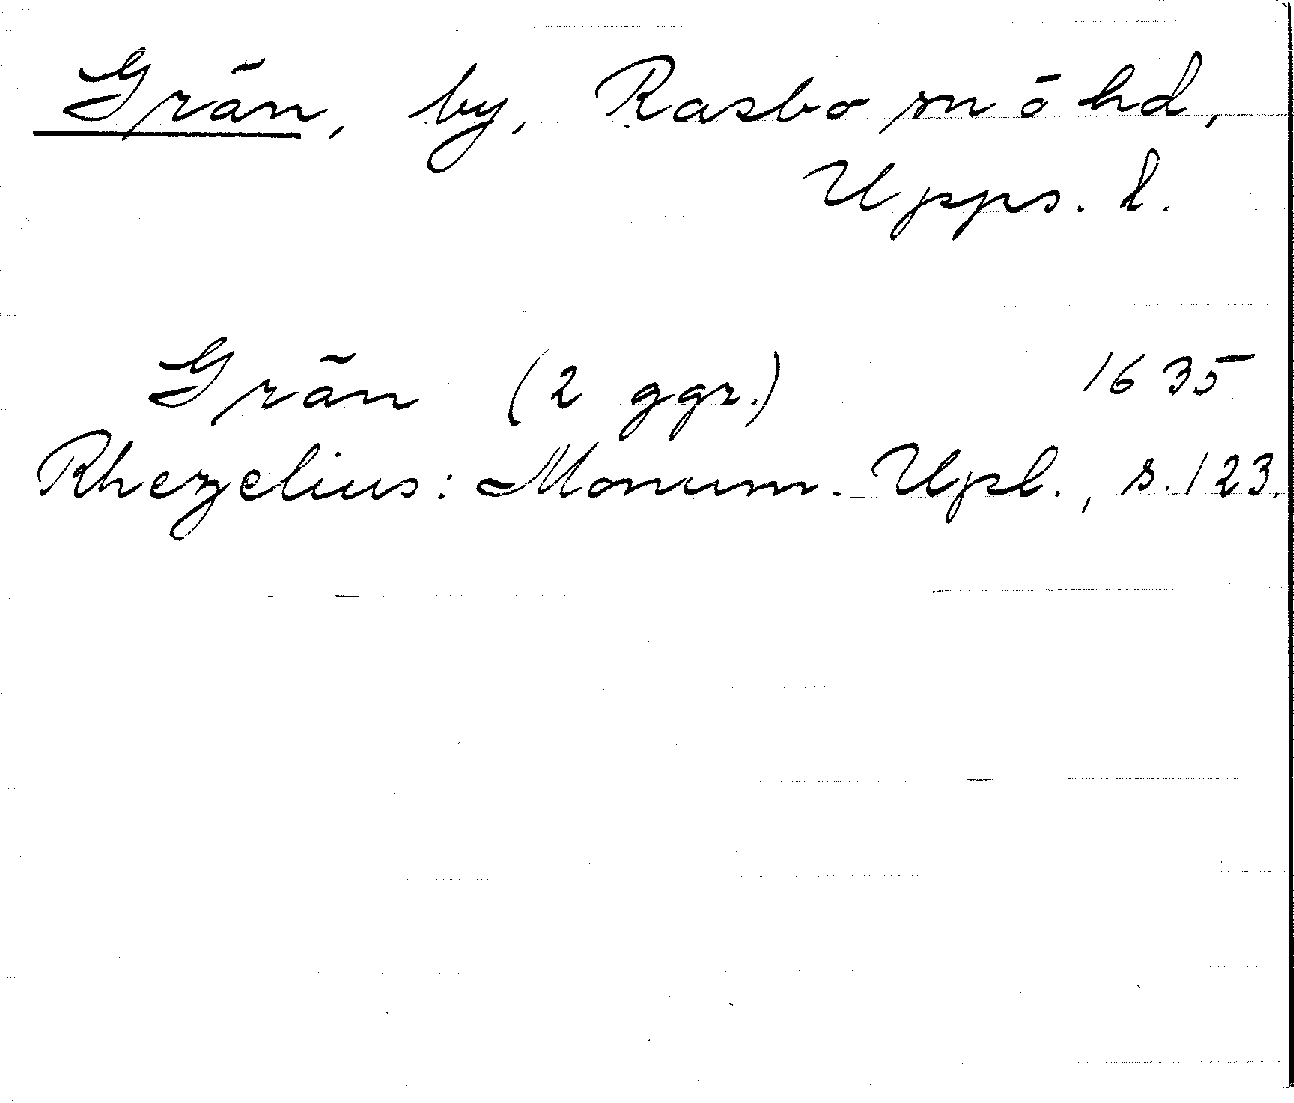 Grän, by, Rasbo sn o hd,
Upps. l.
Grän (2 ggr.) 1635
Rhezelius: Monum. Upl., s. 123.